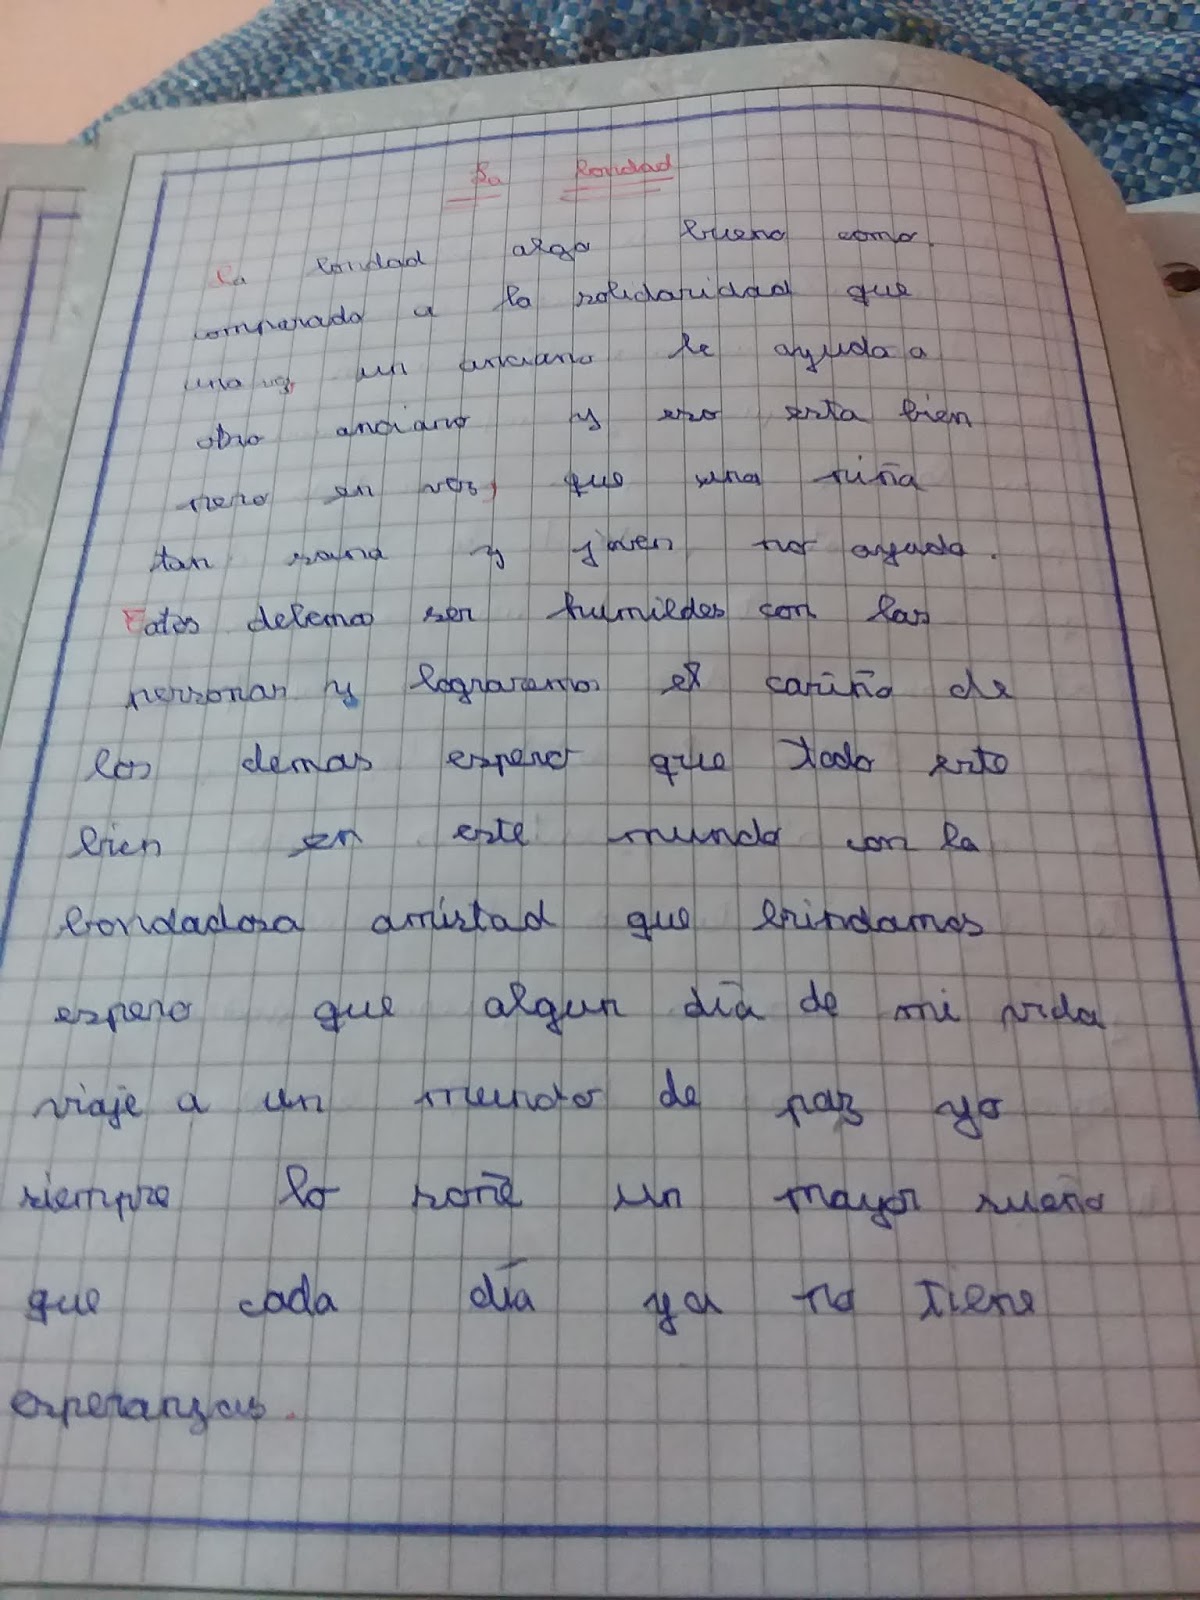 La bondad
La bondad algo bueno como
comparado a la solidaridad que
una vez un anciano le ayuda a
otro anciano y eso esta bien
pero en vez, que una niña
tan sana y joven no ayuda.
debemos ser humildes con las
personas y lograremos el cariño de
los demas espero que todo este
bien en este mundo con la
bondadosa amistad que brindamos
espero que algun día de mi vida
viaje a un mundo de paz yo
siempre lo soñe un mayor sueño
que cada día ya no tiene
esperanzas.